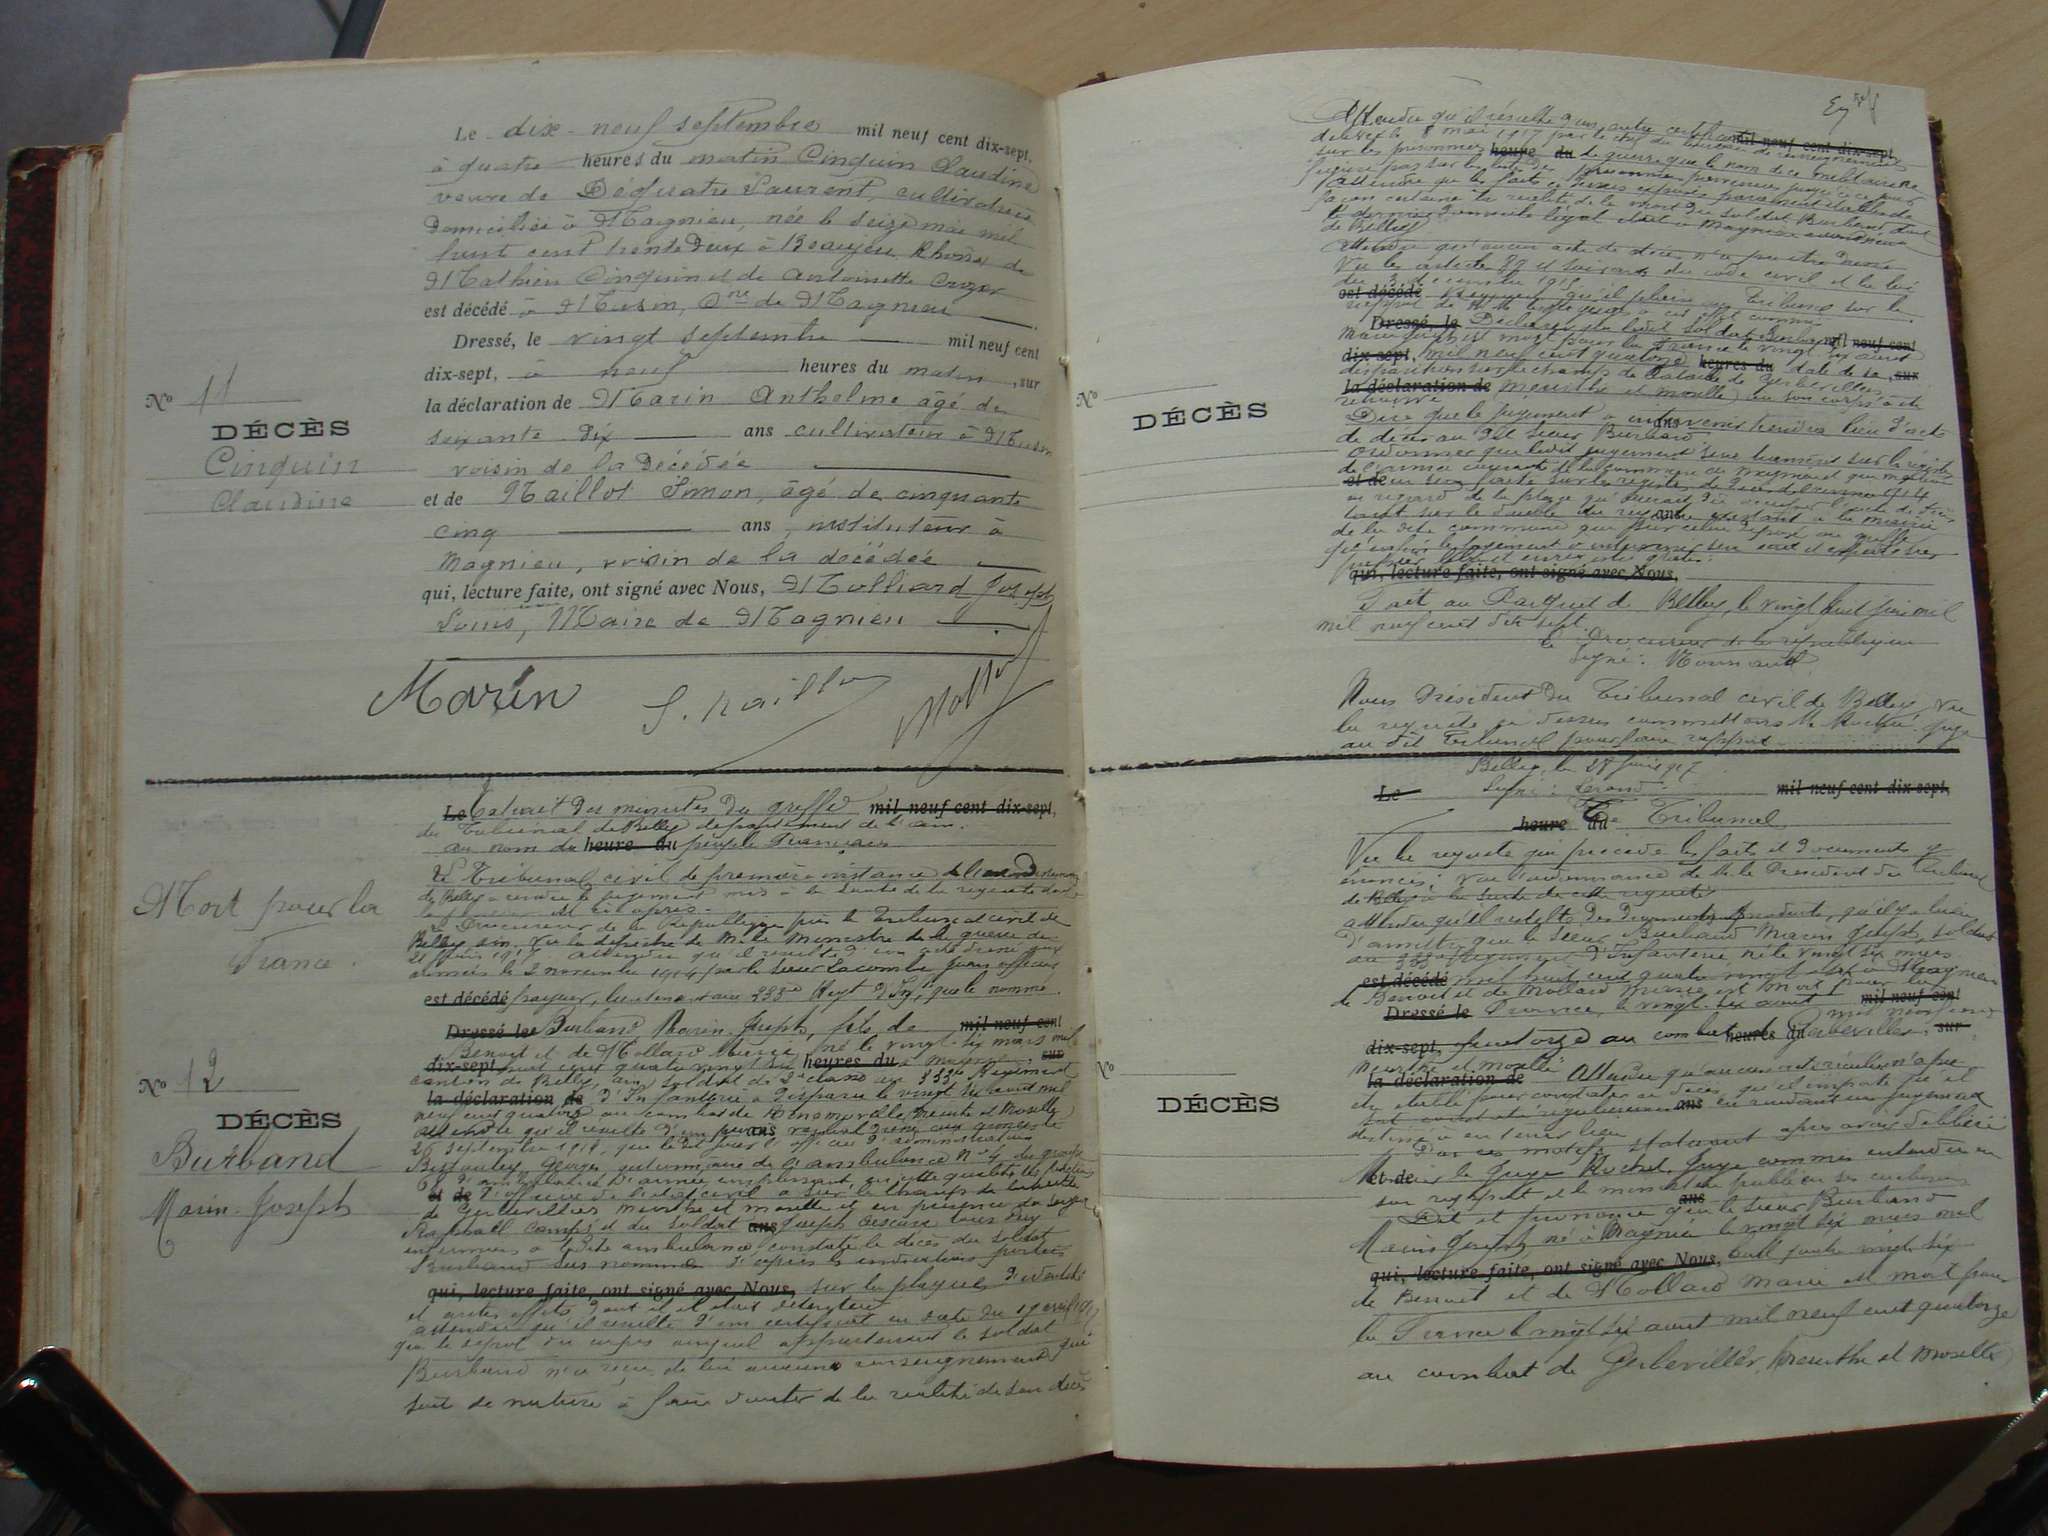 Le dix-neuf septembre mil neuf cent dix-sept,
à quatre heures du matin Cinquin Claudine
veuve de Déquatre Laurent, cultivatrice
domiciliée à Magnieu, née le seize mai mil
huit cent trente deux à Beaujeu, Rhône de
Mathieu Cinquin et de Antoinette
est décédé à Musin, Cne de Magnieu
Dressé, le vingt septembre mil neuf cent
dix-sept, à neuf heures du matin, sur
la déclaration de Marin Anthelme âgé de
seixante dix ans cultivateur à Musin
voisin de la décédée
et de Naillot Simon, âgé de cinquante
cinq ans, instituteur à
Magnieu, voisin de la décédée
qui, lecture faite, ont signé avec Nous, Molliard Joseph
Louis, Maire de Magnieu
Marin
S. Naillot
Nº 11
DÉCÈS
Cinquin
Claudine
Mort pour la
France.
Nº 12
DÉCÈS
Burband
Marin Joseph
Le Extrait des minutes du greffe mil neuf cent dix-sept,
du Tribunal de Belley département de l'ain.
au nom du heure du peuple Français
Le Tribunal civil de première instance de
de Belley a rendu le jugement mis à la suite de la requête dont
la teneur est ci après.
Le Procureur de la République près le Tribunal civil de
Belley, ain. Vu la dépêche de M. le Ministre de la guerre du
21 juin 1917. attendu qu'il résulte d'un acte dressé aux
armées le 2 novembre 1914 par le sieur Lacombe Jean officier
est décédé payeur, lieutenant au 333me Regt d'Inf, que le nommé
Dressé le Burband Marin Joseph, fils de mil neuf cent
Benoit et de Mollard Marie, né le vingt-six mars mil
dix-sept huit cent quatre vingt six heures du à Magnieu, sur
canton de Belley, ain, soldat de 2e classe au 333me Régiment
la déclaration de d'Infanterie a disparu le vingt six août mil
neuf cent quatorze au combat de Meurthe et Moselle
attendu qu'il résulte d'un ans dressé aux armées le
septembre 1914, que officier d'administration
Georges, gestionnaire de l'ambulance Nº 4 du groupe
et de d'officier de l'état civil a sur le champ de bataille
de Gerbeviller Meurthe et Moselle et en présence du sergent
Raphaël et du soldat ans Joseph tous deux
infirmiers à la dite ambulance, constaté le décès du soldat
Burband sus nommé d'après les indications portées
qui, lecture faite, ont signé avec Nous, sur la plaque d'identité
et autres effets dont il était
attendu qu'il résulte d'un certificat en date du 19 avril 1917
que le dépôt du corps auquel appartenait le soldat
Burband n'a reçu de lui aucun renseignement qui
soit de nature à faire douter de la réalité de son décès
Attendu qu'il résulte d'un autre certificat mil neuf cent dix-sept,
délivré le 8 mai 1917 par le chef du bureau de renseignements
sur les prisonniers heure du de guerre que le nom de ce militaire ne
figure pas sur les listes de prisonniers parvenues jusqu'à ce jour
attendu que les faits ci dessus exposés
façon certaine la réalité de la mort du soldat Burband dont
le dernier domicile légal était à Magnieu arrondissement
de Belley
attendu qu'aucun acte de décès n'a pu être dressé
Vu les articles 89 et suivants du code civil et la loi
du 3 décembre 1915
est décédé Requiert qu'il plaise au Tribunal sur le
rapport de M. le Juge à cet effet commis
Dressé, le Déclarer que ledit soldat Burband mil neuf cent
Marin Joseph est mort pour la France le vingt six août
dix-sept, mil neuf cent quatorze heures du date de sa, sur
disparition sur le champ de bataille de Gerbeviller
la déclaration de (Meurthe et Moselle) où son corps a été
retrouvé
Dire que le jugement à intervenir tiendra lieu d'acte
de décès au dit sieur Burband
Ordonner que ledit jugement sera transcrit sur le registre
de l'année courante de la commune de Magnieu que mention
et de en sera faite sur les registres de l'année 1914
en regard de la place qu'aurait dû occuper l'acte de décès
tant sur le double du registre existant à la mairie
de la dite commune que sur celui déposé au greffe
qui, lecture faite, ont signé avec Nous,
Fait au Parquet de Belley, le vingt huit juin mil
mil neuf cent dix sept
le Procureur de la république
Signé:
Nous Président du Tribunal civil de Belley, Vu
la requête ci dessus commettons M. juge
au dit Tribunal pour faire rapport
Nº
DÉCÈS
Belley, le 28 juin 1917
Le Signé: mil neuf cent dix-sept,
heure du Le Tribunal
Vu la requête qui précède les faits et documents y
énoncés; Vu l'ordonnance de M. le Président du Tribunal
de Belley à la suite de cette requête
attendu qu'il résulte des documents produits, qu'il y a lieu
d'admettre que le sieur Burband Marin Joseph, soldat
au 333me régiment d'Infanterie, né le vingt six mars
est décédé mil huit cent quatre vingt six à Magnieu
de Benoit et de Mollard Marie est mort pour la
Dressé le France, le vingt-six août mil neuf cent
dix-sept, quatorze au combat de heures du Gerbeviller, sur
Meurthe et Moselle
la déclaration de Attendu qu'aucun acte régulier n'a pu
être établi pour constater ce décès, qu'il importe qu'il
soit constaté régulièrement ans en rendant un jugement
destiné à en tenir lieu
Par ces motifs statuant après avoir délibéré
et de le Juge commis entendu en
son rapport et le ministère public en ses conclusions
ans
Dit et prononce que le sieur Burband
Marin Joseph né à Magnieu le vingt six mars mil
qui, lecture faite, ont signé avec Nous, huit cent quatre vingt six
de Benoit et de Mollard Marie est mort pour
la France le vingt six août mil neuf cent quatorze
au combat de Gerbeviller, Meurthe et Moselle
Nº
DÉCÈS